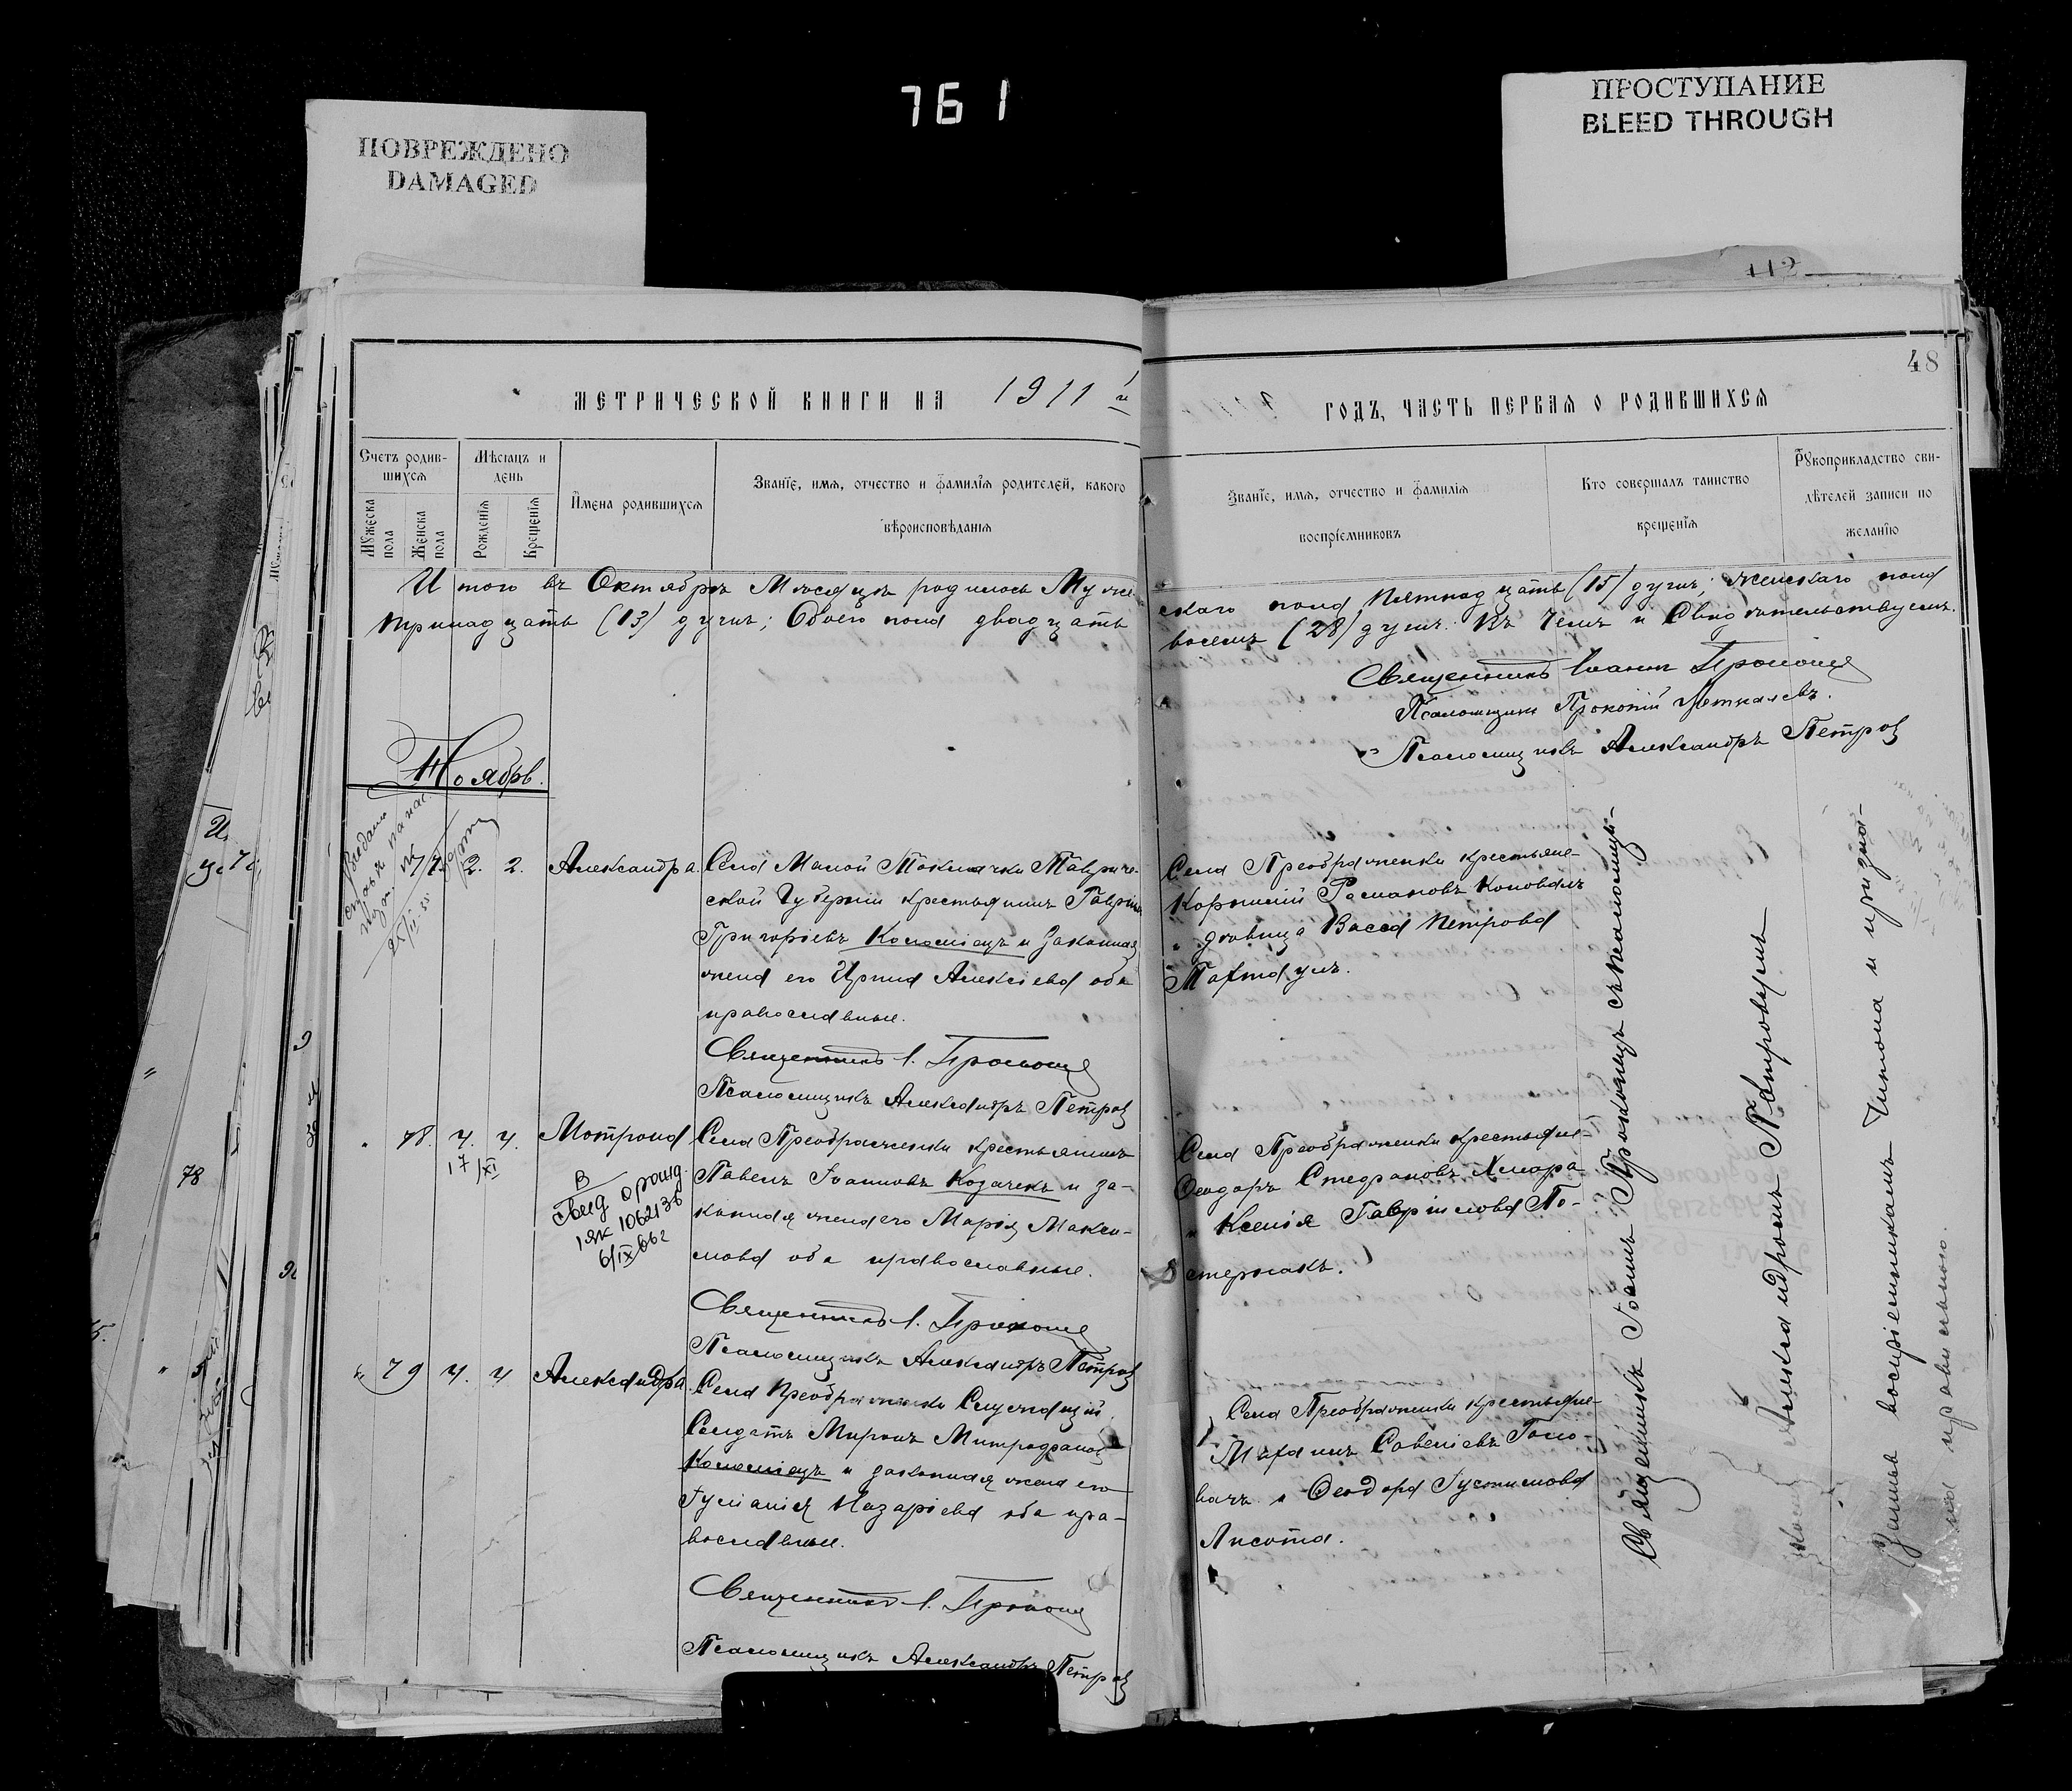 761
ПОВРЕЖДЕНО
DAMAGED
ПРОСТУПАНИЕ
BLEED THROUGH
112
48
МЕТРИЧЕСКОЙ КНИГИ НА 1911 й
ГОДЪ, ЧАСТЬ ПЕРВАЯ О РОДИВШИХСЯ
Счетъ родив-
шихся
Мужеска пола
Женска пола
Мѣсяцъ и
день
Рожденія
Крещенія
Имена родившихся
Званіе, имя, отчество и фамилія родителей, какого
вѣроисповѣданія
Званіе, имя, отчество и фамилія
воспріемниковъ
Кто совершалъ таинство
крещенія
Рукоприкладство сви-
дѣтелей записи по
желанію
Итого въ Октябрѣ Мѣсяцѣ родилось Муже-
скаго пола Пятнадцать (15) душъ; женскаго пола
тринадцать (13) душъ; Обоего пола двадцать
восемь (28) душъ. Въ чемъ и Свидѣтельствуемъ.
Священникъ Іоаннъ
Псаломщикъ Прокопій
Псаломщикъ Александръ Петров
Ноябрь.
77 2. 2. Александра.
Села Малой Токмачки Тавриче-
ской Губерніи крестьянинъ Гавріилъ
Григоріевъ Коломіецъ и законная
жена его Ирина Алексіева оба
православные.
Священникъ І.
Псаломщикъ Александръ Петров
Села Преображенки крестьяне-
Корнилій Романовъ Коновалъ
и дѣвица Васса Петрова
" 78. 4. 4. Мотрона
17/XI
В
свид о рожд.
1 ЯК 106213
6/IX 66г
Села Преображенки крестьянинъ
Павелъ Іоанновъ Козачекъ и за-
конная жена его Марія Макси-
мова оба православные.
Священникъ І.
Псаломщикъ Александръ Петров
Села Преображенки крестьяне-
Ѳеодоръ Стефановъ Хмара
и Ксенія Гавріилова По-
стернакъ.
" 79 4. 4 Александра.
Села Преображенки Служащій
Солдатъ Миронъ Митрофанов
Коломіецъ и законная жена его
Іуліанія Назаріева оба пра-
вославные.
Священникъ І.
Псаломщикъ Александръ Петров
Села Преображенки крестьяне-
Савеліевъ Голо-
вачъ и Ѳеодора Іустинова
Лисота.
Священникъ Іоаннъ съ псаломщи-
комъ Александромъ Петровымъ
Запись воспріемникамъ читана и призна-
на правильною
78